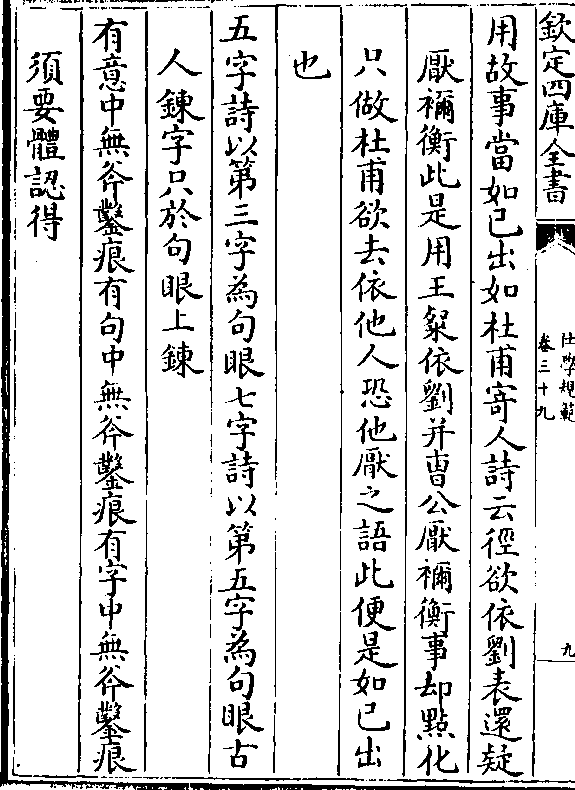 欽定四庫全書
仕學規範
卷三十九
九
用故事當如己出如杜甫寄人詩云徑欲依劉表還疑
厭禰衡此是用王粲依劉并曹公厭禰衡事却點化
只做杜甫欲去依他人恐他厭之語此便是如己出
也
五字詩以第三字為句眼七字詩以第五字為句眼古
人鍊字只於句眼上鍊
有意中無斧鑿痕有句中無斧鑿痕有字中無斧鑿痕
須要體認得